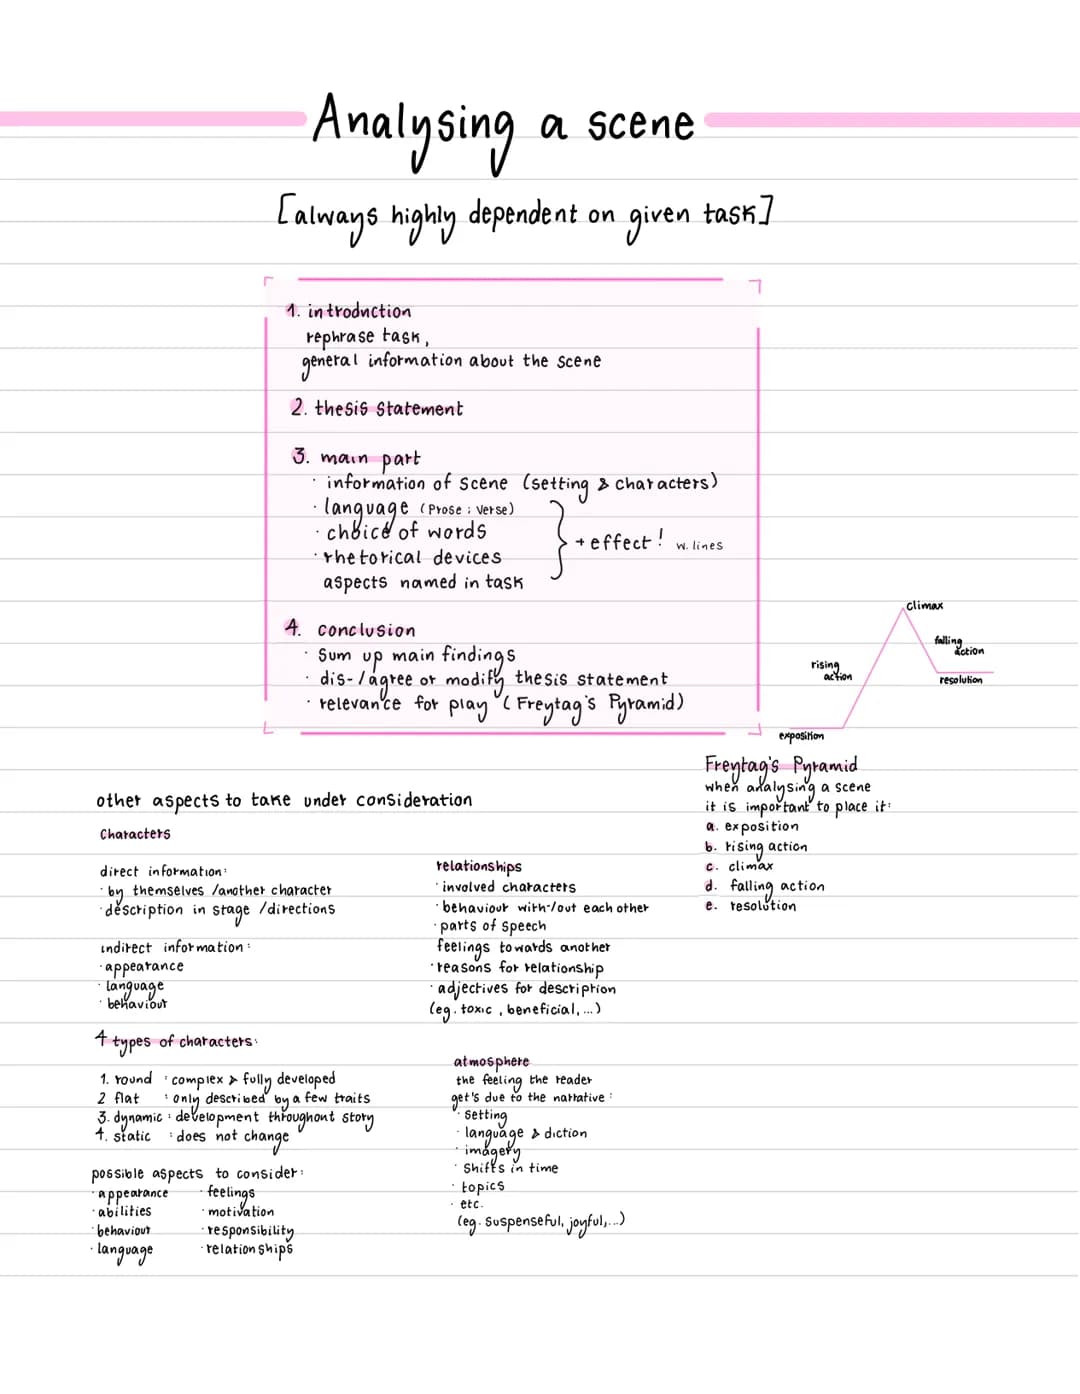 Analysing a scene
[always highly dependent on given task]
1. introduction
rephrase task,
general information about the scene
2. thesis statement
3. main part
· information of scene (setting & characters)
· language (Prose ; Verse)
· choice of words
· rhetorical devices
aspects named in task
+ effect! w. lines
4. conclusion
· sum up main findings
· dis-/agree or modify thesis statement
· relevance for play (Freytag's Pyramid)
climax
falling
action
rising
action
resolution
exposition
Freytag's Pyramid
when analysing a scene
it is important to place it:
a. exposition
b. rising action
c. climax
d. falling action
e. resolution
other aspects to take under consideration
Characters
direct information:
· by themselves /another character
· description in stage /directions
indirect information:
· appearance
· language
· behaviour
4 types of characters:
1. round : complex & fully developed
2 flat : only described by a few traits
3. dynamic : development throughout story
4. static : does not change
possible aspects to consider:
· appearance · feelings
· abilities · motivation
· behaviour · responsibility
· language · relationships
relationships
· involved characters
· behaviour with-/out each other
· parts of speech
feelings towards another
· reasons for relationship
· adjectives for description
(eg. toxic, beneficial, ...)
atmosphere
the feeling the reader
get's due to the narrative :
· setting
· language & diction
· imagery
· shifts in time
· topics
· etc.
(eg. suspenseful, joyful,...)